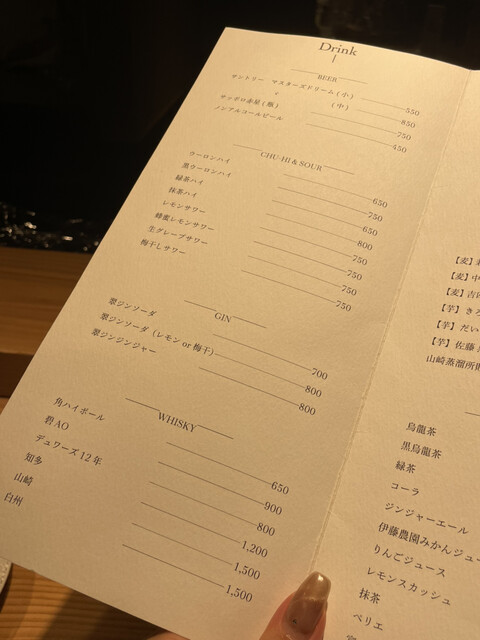 Drink
BEER
サントリー マスターズドリーム(小) 550
〃 (中) 850
サッポロ赤星(瓶) 750
ノンアルコールビール 450
CHU-HI & SOUR
ウーロンハイ 650
黒ウーロンハイ 750
緑茶ハイ 650
抹茶ハイ 800
レモンサワー 750
蜂蜜レモンサワー 750
生グレープサワー 750
梅干しサワー 750
GIN
翠ジンソーダ 700
翠ジンソーダ(レモン or 梅干) 800
翠ジンジンジャー 800
WHISKY
角ハイボール 650
碧AO 900
デュワーズ12年 800
知多 1,200
山崎 1,500
白州 1,500
【麦】
【麦】中
【麦】吉
【芋】きろ
【芋】だい
【芋】佐藤
山崎蒸溜所
烏龍茶
黒烏龍茶
緑茶
コーラ
ジンジャーエール
伊藤農園みかんジュー
りんごジュース
レモンスカッシュ
抹茶
ペリエ